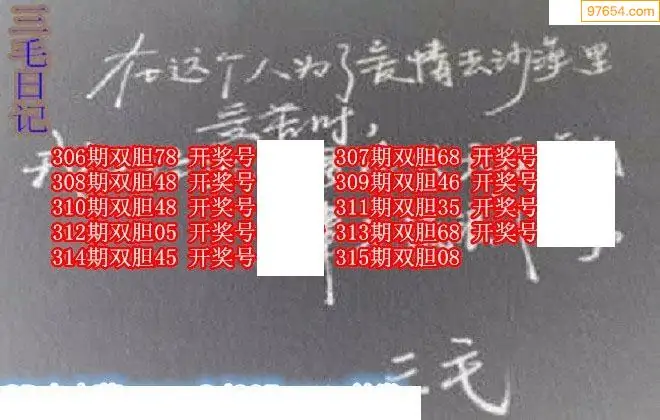 97654.com
三毛日记
在这个人为了爱情去沙漠里
受苦时，
306期双胆78 开奖号 307期双胆68 开奖号
308期双胆48 开奖号 309期双胆46 开奖号
310期双胆48 开奖号 311期双胆35 开奖号
312期双胆05 开奖号 313期双胆68 开奖号
314期双胆45 开奖号 315期双胆08
三毛